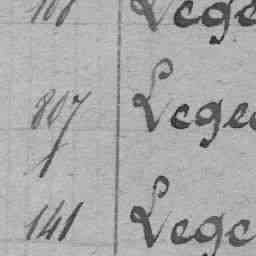 Lege
807 Lege
141 Lege